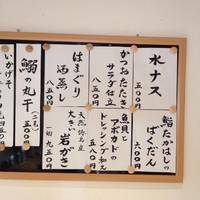 水ナス
かつおたたき
サラダ仕立
八五〇円
はまぐり
酒蒸し
八五〇円
鰯の丸干
(二尾)
五〇〇円
いかげそ
鮨たかはしの
ばくだん
六〇〇円
魚貝と
アボカドの
ドレッシング和え
五八〇円
大きい
岩がき
九五〇